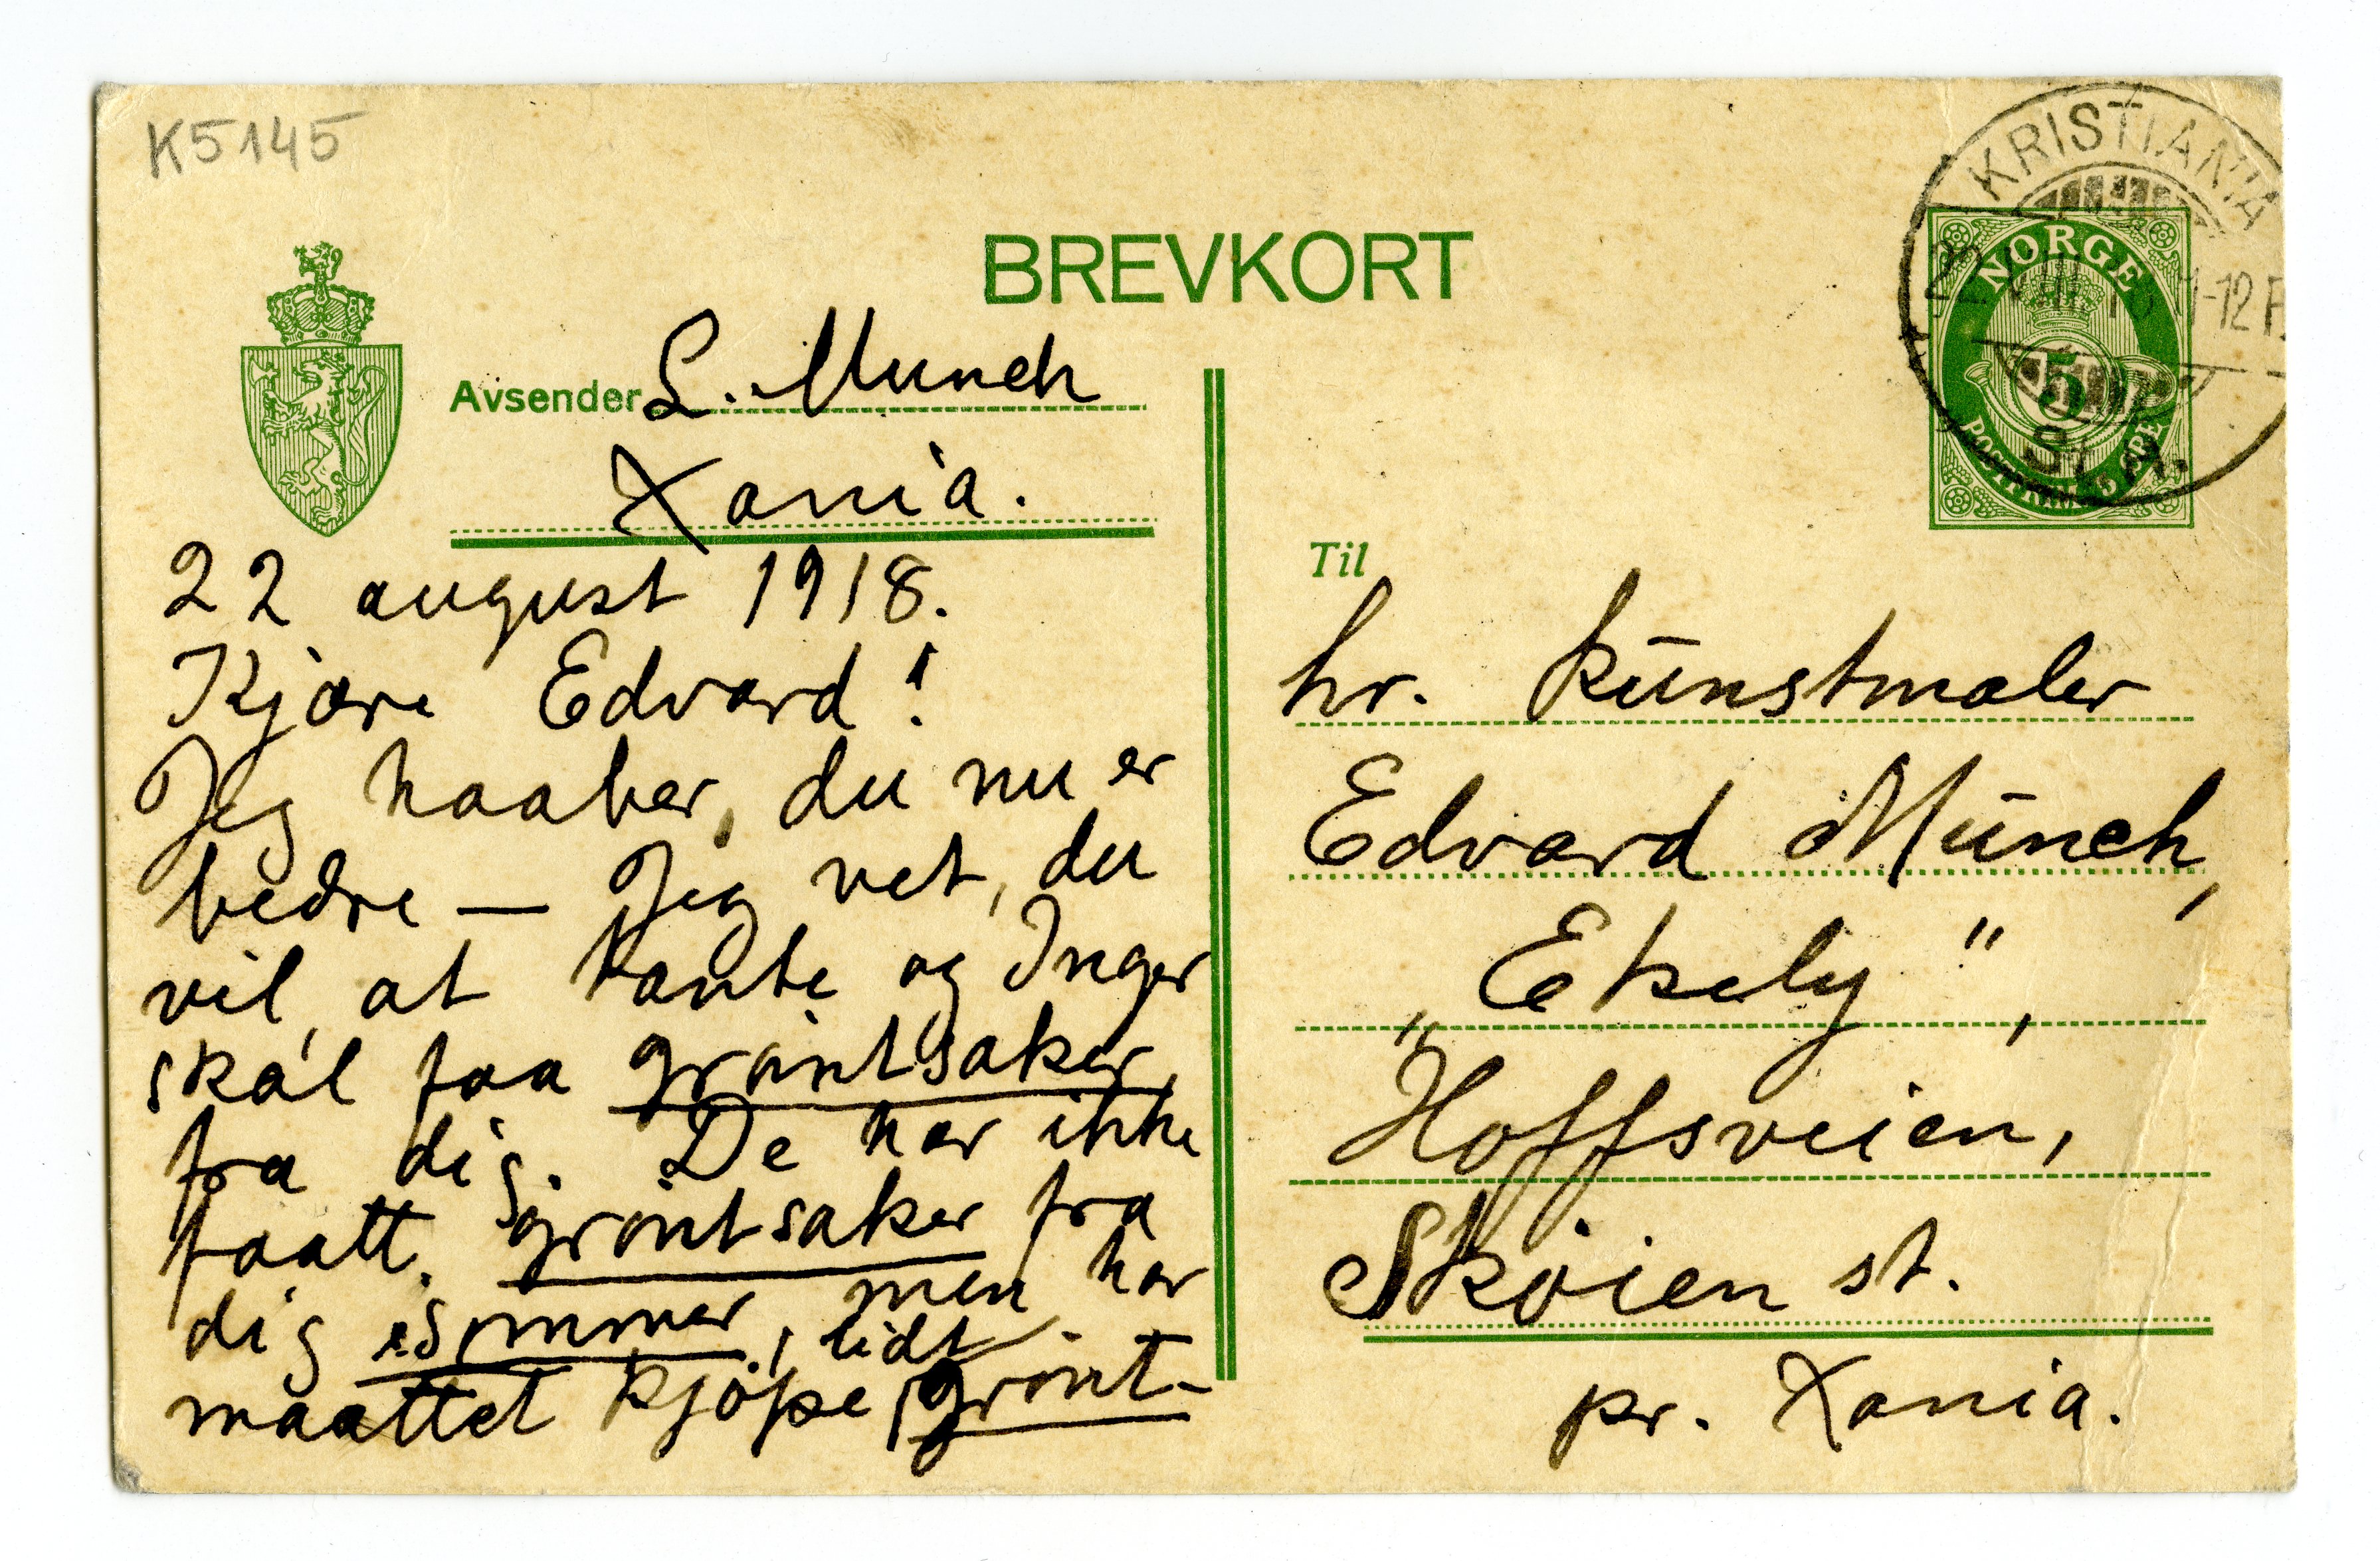 K5145
BREVKORT
KRISTIANIA
NORGE
5
Avsender L. Munch
Xania.
22 august 1918.
Kjære Edvard!
Jeg haaber, du nu er
bedre — Jeg vet, du
vil, at tante og Inger
skal faa grøntsaker
fra dig. De har ikke
faatt grøntsaker fra
dig isommer, men har
maattet kjøpe lidt grønt-
Til
hr. kunstmaler
Edvard Munch,
„Ekely",
Hoffsveien,
Skøien st.
pr. Xania.